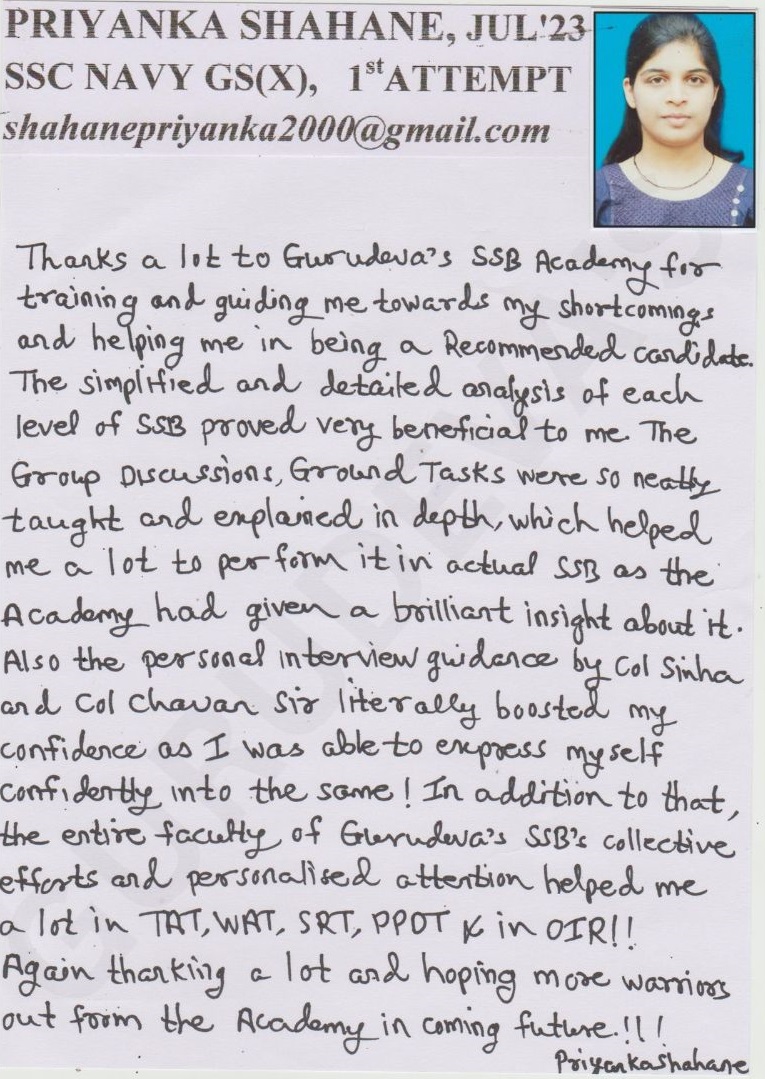 PRIYANKA SHAHANE, JUL'23
SSC NAVY GS(X), 1st ATTEMPT
shahanepriyanka2000@gmail.com
Thanks a lot to Gurudeva's SSB Academy for
training and guiding me towards my shortcomings
and helping me in being a Recommended candidate.
The simplified and detailed analysis of each
level of SSB proved very beneficial to me. The
Group Discussions, Ground Tasks were so neatly
taught and explained in depth, which helped
me a lot to perform it in actual SSB as the
Academy had given a brilliant insight about it.
Also the personal interview guidance by Col Sinha
and Col Chavan Sir literally boosted my
confidence as I was able to express myself
confidently into the same! In addition to that,
the entire faculty of Gurudeva's SSB's collective
efforts and personalised attention helped me
a lot in TAT, WAT, SRT, PPDT & in OIR!!
Again thanking a lot and hoping more warriors
out from the Academy in coming future.!!!
PriyankaShahane
GURUDEVA'S